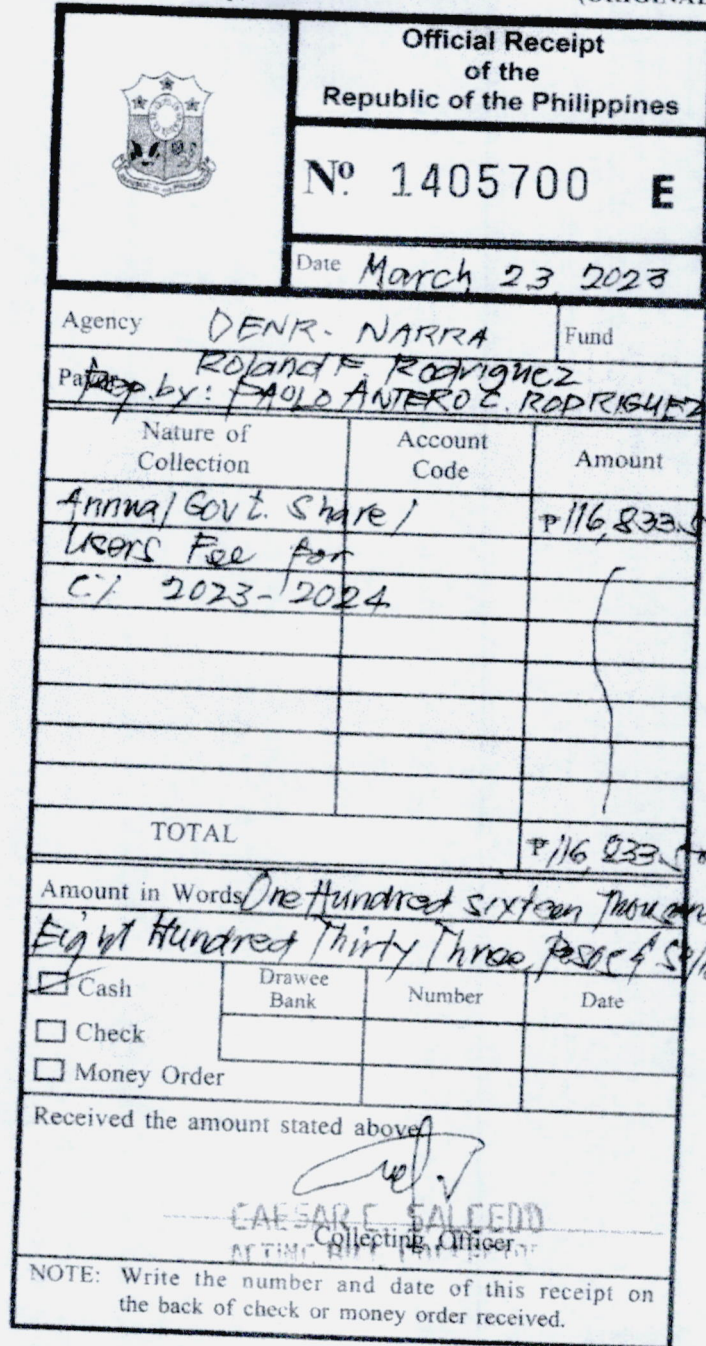 (ORIGINAL
Official Receipt
of the
Republic of the Philippines
Nº 1405700 E
Date March 23, 2023
Agency DENR- NARRA Fund
Roland F. Rodriguez
Rep. by: PAOLO ANTERO C. RODRIGUEZ
Nature of Collection Account Code Amount
Annual Govt. Share / ₱116,833.5
Users Fee for
CY 2023-2024
TOTAL ₱116,833.50
Amount in Words One Hundred sixteen Thousand
Eight Hundred Thirty Three Pesos & 50/
Cash Drawee Bank Number Date
Check
Money Order
Received the amount stated above
CAESAR E. SALCEDO
Collecting Officer
ACTING BILL COLLECTOR
NOTE: Write the number and date of this receipt on
the back of check or money order received.